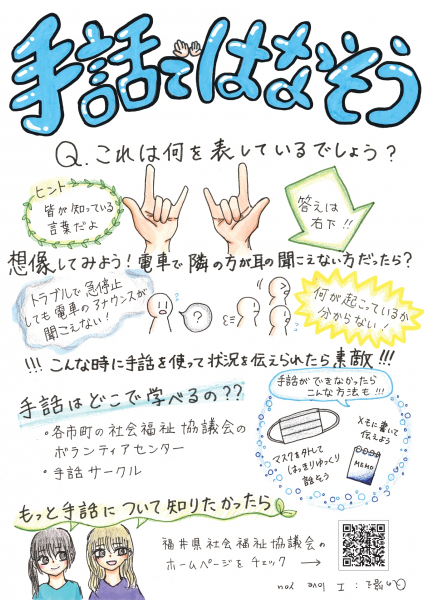 手話ではなそう
Q.これは何を表しているでしょう?
ヒント
皆が知っている
言葉だよ
答えは
右下!!
想像してみよう!電車で隣の方が耳の聞こえない方だったら?
トラブルで急停止
しても電車のアナウンスが
聞こえない!
?
何が起こっているか
分からない!
!!!こんな時に手話を使って状況を伝えられたら素敵!!!
手話はどこで学べるの??
・各市町の社会福祉協議会の
ボランティアセンター
・手話サークル
手話ができなかったら
こんな方法も!!!
マスクを外して
はっきりゆっくり
話そう
メモに書いて
伝えよう
MEMO
もっと手話について知りたかったら
福井県社会福祉協議会の
ホームページをチェック→
Qの答え:I love you